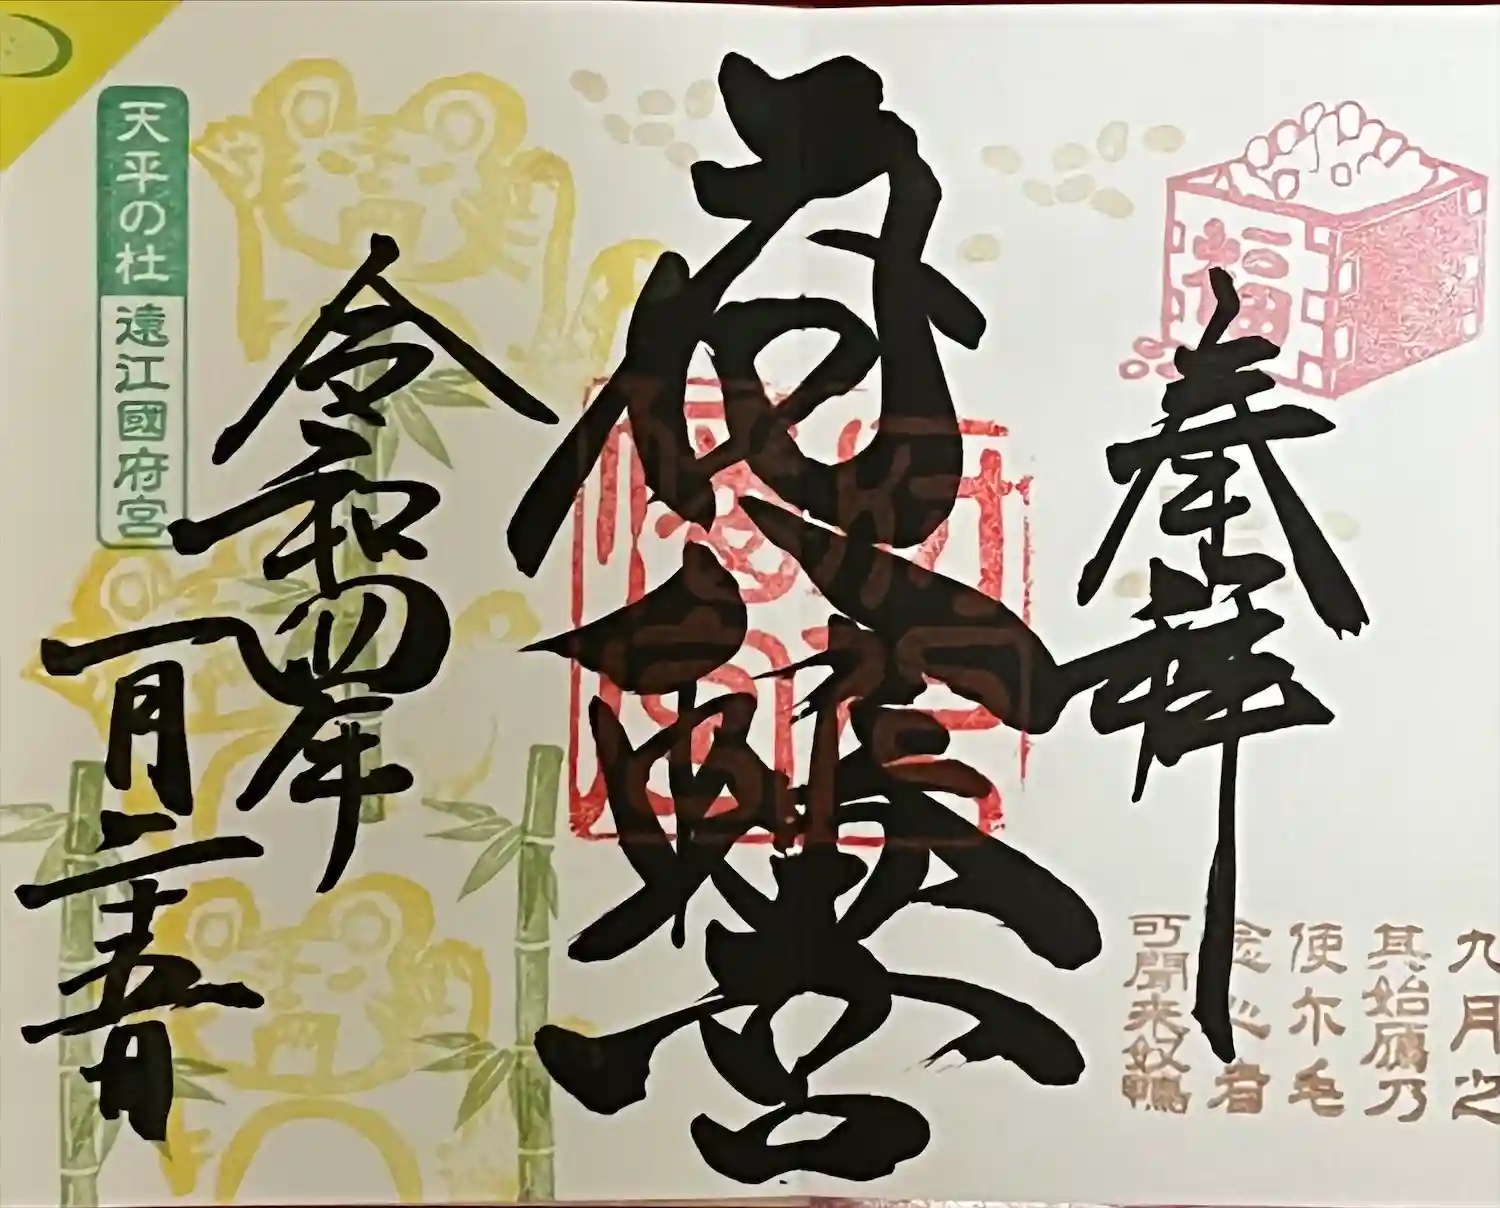 福
奉拝
九月之
其始鴈乃
使尓毛
念心者
可聞来奴鴨
府八幡宮
令和四年
一月二十五日
天平の杜
遠江國府宮